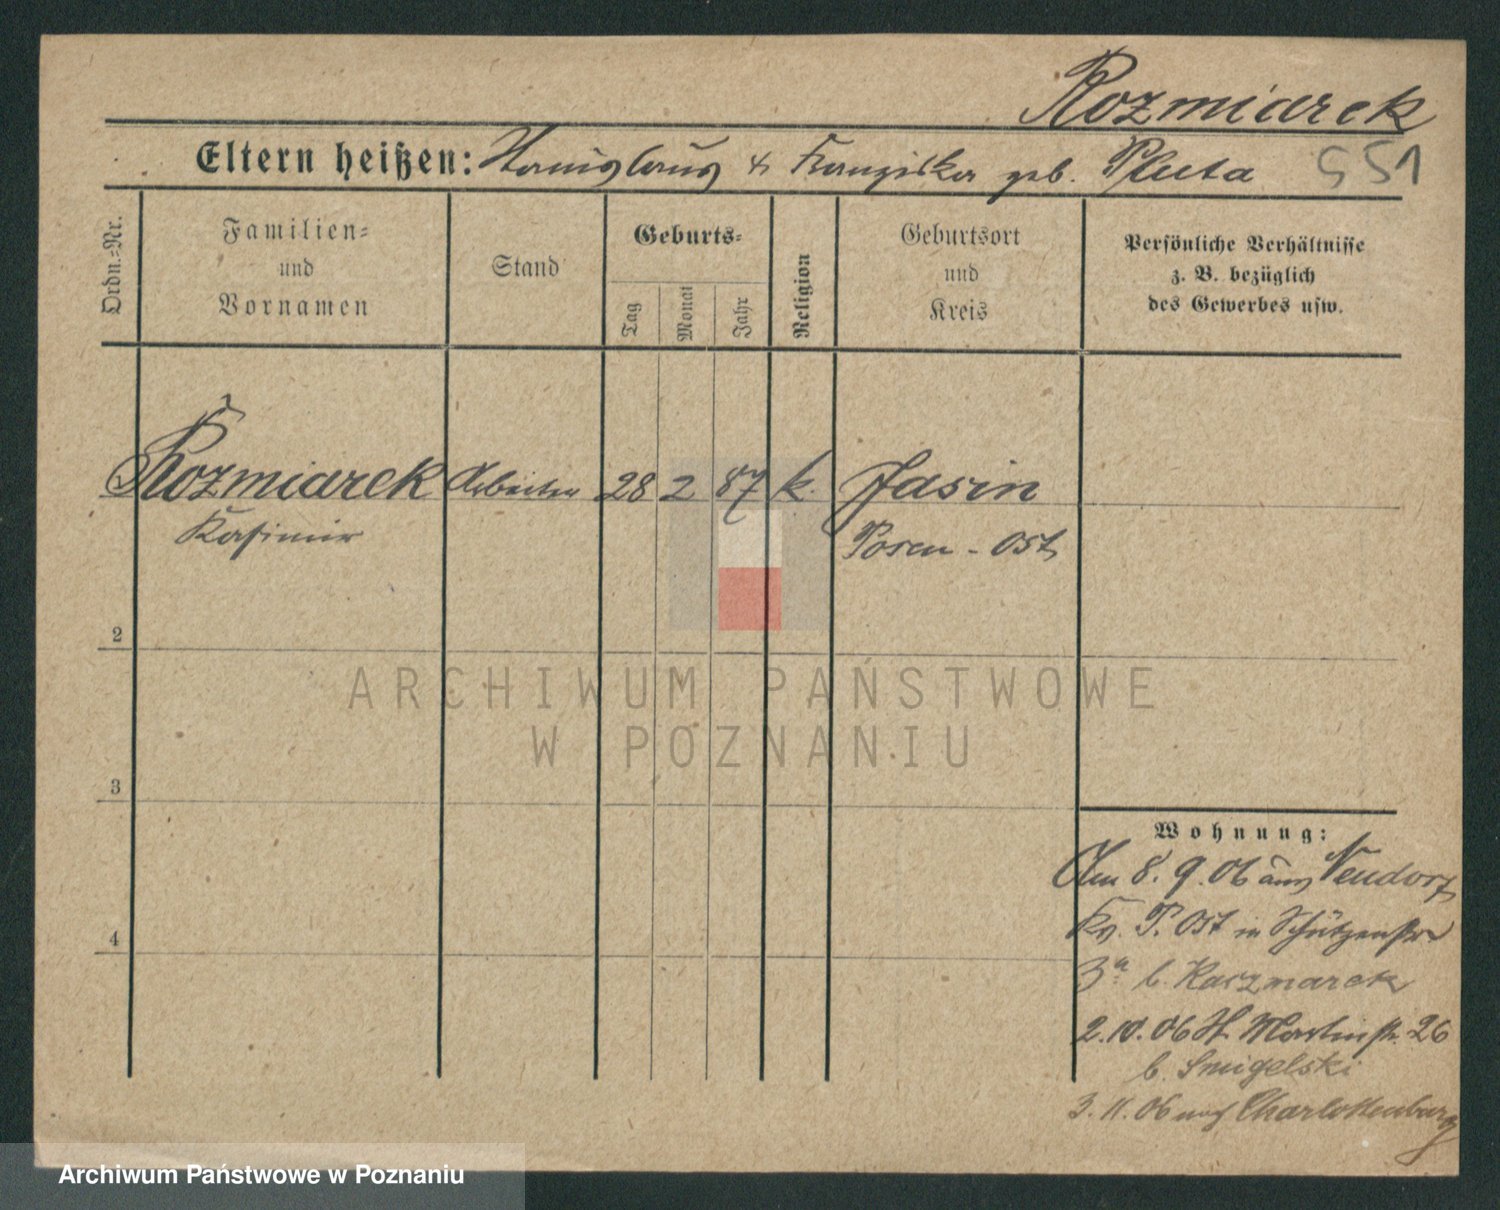 Rozmiarek
Eltern heißen: Stanislaus & Franziska geb. Pluta 551
Ordn.=Nr.
Familien=
und
Vornamen
Stand
Geburts=
Tag
Monat
Jahr
Religion
Geburtsort
und
Kreis
Persönliche Verhältnisse
z. B. bezüglich
des Gewerbes usw.
Rozmiarek Arbeiter 28 2 87 k. Jasin
Kasimir Posen - Ost
2
3
4
Wohnung:
Am 8. 9. 06 aus Neudorf
Kr. P. Ost in Schützenstr
3a b. Kaczmarek
2. 10. 06 St. Martinstr. 26
b. Smigelski
3. 11. 06 nach Charlottenburg
ARCHIWUM PAŃSTWOWE
W POZNANIU
Archiwum Państwowe w Poznaniu